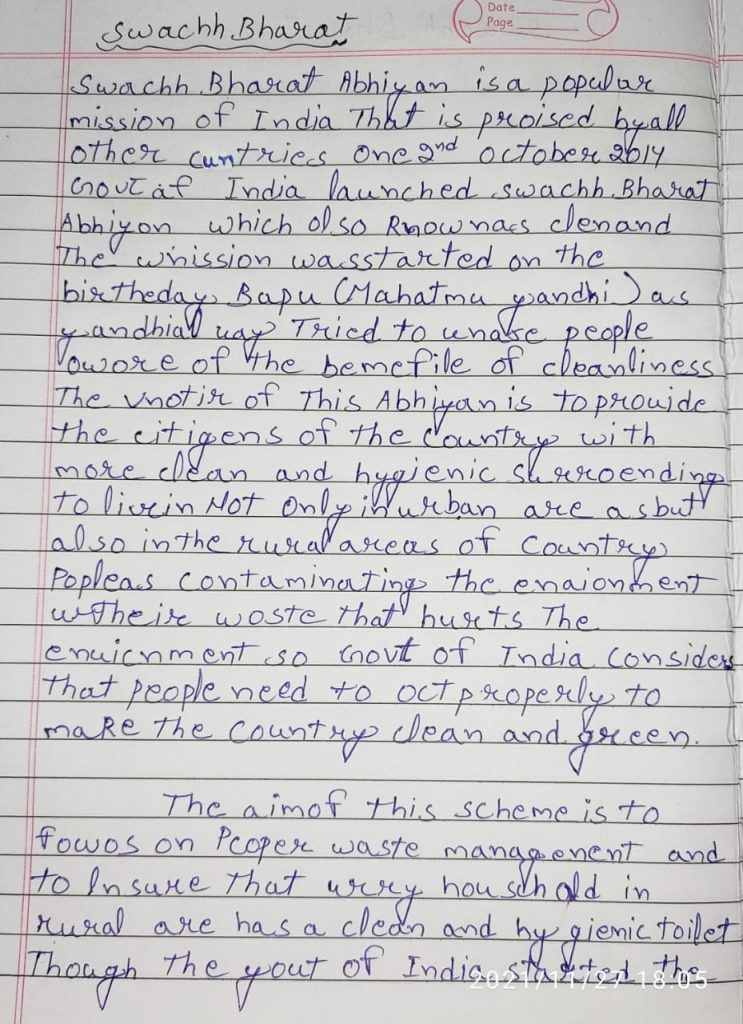 Date
Page
Swachh Bharat
Swachh Bharat Abhiyan is a popular
mission of India That is proised by all
other cuntries one 2nd october 2014
Govt af India launched swachh Bharat
Abhiyon which also Rnownas clenand
The whission wasstarted on the
birtheday Bapu (Mahatma yandhi) as
yandhial uay Tried to unake people
owore of the bemefile of cleanliness
The vnotir of This Abhiyan is to prouide
the citigens of the country with
more clean and hygienic surroending
to livein Not only in urban are asbut
also in the rural areas of country
Popleas contaminating the enaionment
w their woste that hurts The
enuicnment so Govt of India considers
that people need to oct properly to
maRe the country clean and green.
The aimof this scheme is to
fowos on Pcoper waste management and
to Insure that urry houshold in
rural are has a clean and hygienic toilet
Though the yout of India started the
2021/11/27 18:05